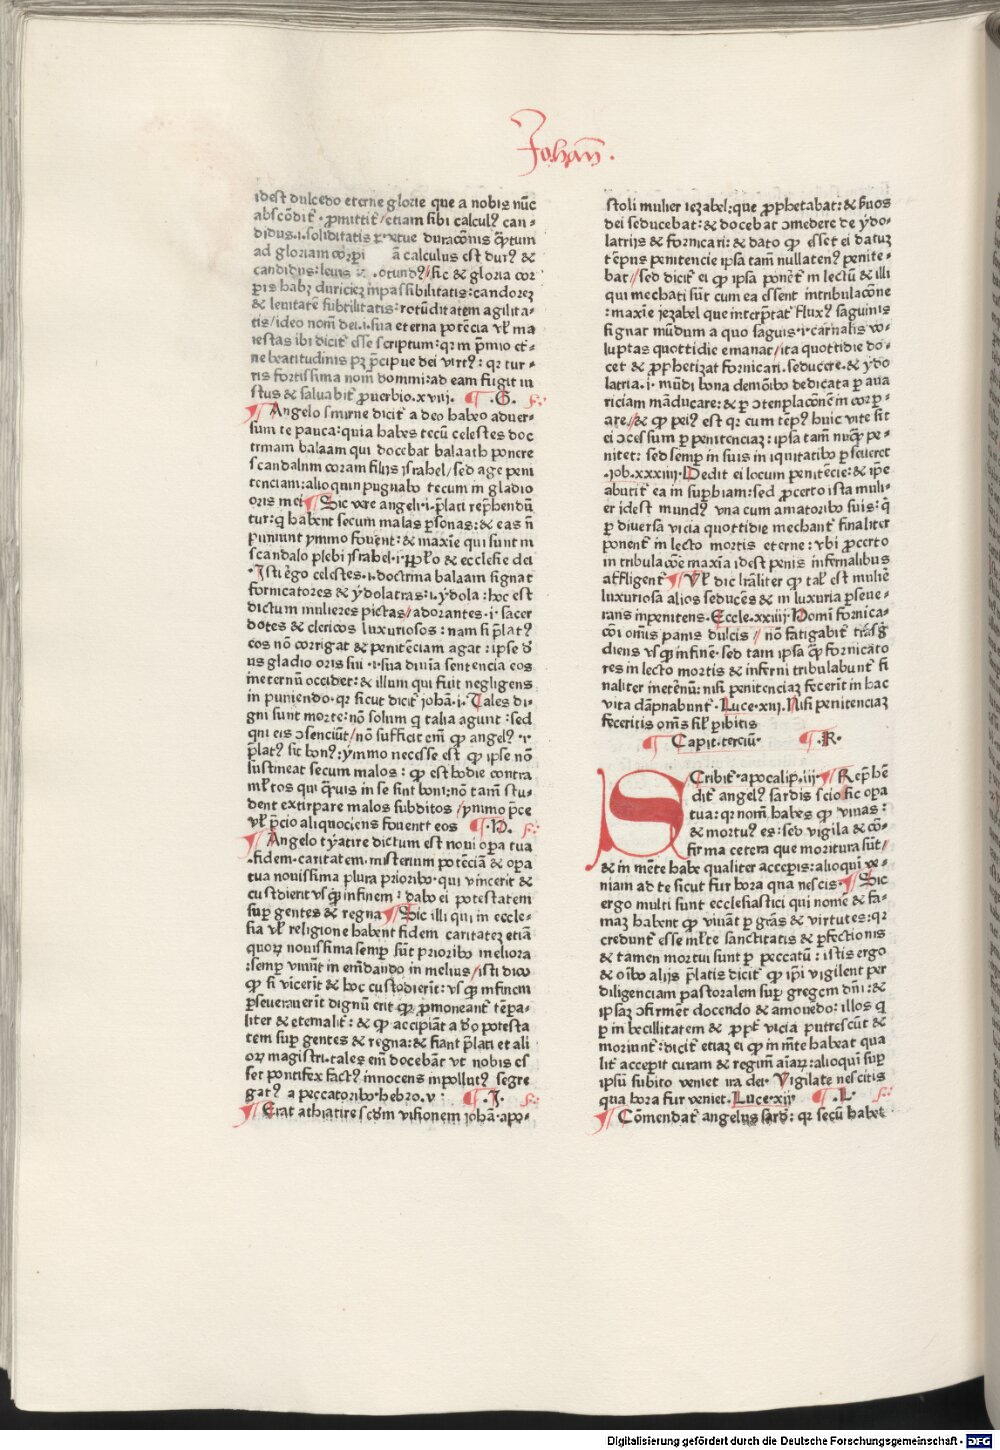 Johan̄.
idest dulcedo eterne glorie que a nobis nūc
abscōdit᷑ · ꝓmittit᷑/etiam sibi calculꝰ can⸗
didus.i.soliditatis ⁊ virtue duracōnis qͥptum
ad gloriam corꝑi ā calculus est durꝰ &
candidus:leuis otundꝰ/sic & gloria cor
ꝑis habꝫ duriciez inpassibilitatis:candorez
& leuitatē subtilitatis:rotūditatem agilita⸗
tis/ideo nom̄ dei.i.sua eterna potēcia vl̓ ma
iestas ibi dicit᷑ esse scriptum:qꝛ in p̄mio et̓⸗
ne beatitudinis pꝫ p̄cipue dei virtꝰ: qꝛ tur⸗
ris fortissima nom̄ domini:ad eam fugit iu
stus & saluabit᷑ ꝓuerbio.xviij. ¶ .G.
¶ Angelo smirne dicit᷑ a deo habeo aduer⸗
sum te pauca:quia habes tecū celestes doc
trinam balaam qui docebat balaath ponere
scandalum coram filijs israhel/sed age peni
tenciam:alioquin pugnabo tecum in gladio
oris mei ¶ Sic vere angeli.i.p̄lati rep̄hendū
tur:q̇ habent secum malas ꝑsonas:& eas n̄
puniunt ymmo fouent:& maxīe qui sunt in
scandalo plebi israhel.i.pp̄lo & ecclesie dei
.Isti ēgo celestes.i.doctrina balaam signat
fornicatores & ydolatras:i.ydola:hoc est
dictum mulieres pictas/adorantes.i.sacer
dotes & clericos luxuriosos:nam si p̄latꝰ
eos nō corrigat & penitēciam agat:ipse d̓
us gladio oris sui.i.sua diuīa sentencia eos
ineternū occidet:& illum qui fuit negligens
in puniendo.qꝛ sicut dicit iohā.i.Tales di⸗
gni sunt morte:nō solum q̇ talia agunt:sed
qui eis ɔsenciūt/nō sufficit em̄ ꝙ angelꝰ.i.
p̄latꝰ sit bonꝰ:ymmo necesse est ꝙ ipse nō
sustineat secum malos:ꝙ est hodie contra
ml̓tos qui qͣuis in se sint boni:nō tam̄ stu⸗
dent extirpare malos subditos/ymmo p̄ce
vl̓ p̄cio aliquociens fouent eos ¶ .H.
¶ Angelo tyatire dictum est noui opera tua
.fidem.caritatem.misterium potēciā & opera
tua nouissima plura prioribꝰ.qui vincerit &
custdierit vsꝙ infinem:dabo ei potestatem
suꝑ gentes & regna ¶ Sic illi qui in eccle⸗
sia vl̓ religione habent fidem caritatez etiā
quoꝝ nouissima semꝑ sūt prioribꝰ meliora
:semꝑ viuūt in em̄dando in melius/isti dico
ꝙ si vicerit & hoc custodierit:vsꝙ infinem
ꝑseuerauerit dignū erit ꝙ ꝓmoneant᷑ tēpa⸗
liter & eternalit᷑:& ꝙ accipiāt a deo potesta
tem suꝑ gentes & regna:& fiant p̄lati et ali
oꝝ magistri.tales em̄ docebāt vt nobis es
set pontifex factꝰ innocens inpollutꝰ segre
gatꝰ a peccatoribꝰ.hebro.v: ¶ .I.
¶ Erat athiatire scd̄m visionem iohā.apo⸗
stoli mulier iezabel:que ꝓphetabat:& ẜuos
dei seducebat:& docebat ɔmedere de ydo⸗
latrijs & fornicari:& dato ꝙ esset ei datuꝫ
tēpus penitencie ipsa tam̄ nullatenꝰ penite⸗
bat/sed dicit᷑ ei ꝙ ipsa ponet᷑ in lectū & illi
qui mechati sūt cum ea essent intribulacōne
:maxīe jezabel que interp̄tat᷑ fluxꝰ saguinis
signat mūdum a quo saguis.i.carnalis vo⸗
luptas quottidie emanat/ita quottidie do⸗
cet & ꝓphetizat fornicari.seducere.& ydo
latria.i.mūdi bona demōibꝰ dedicata ꝑ aua
riciam māducare:& ꝑ ɔtenplacōnē in corꝑ⸗
are/& ꝙ peiꝰ est qꝛ cum tēpꝰ huic vite sit
ei ɔcessum ꝑ penitenciaꝫ:ipsa tam̄ nūꝙ pe⸗
nitet:sed semꝑ in suis in iquitatibꝰ ꝑseueret
.iob.xxxiij.Dedit ei locum penitēcie:& ip̄e
abutit᷑ ea in suꝑbiam:sed ꝓcerto ista muli⸗
er idest mundꝰ vna cum amatoribꝰ suis:q̇
ꝑ diuersa vicia quottidie mechant᷑ finaliter
ponent᷑ in lecto mortis eterne:vbi ꝓcerto
in tribulacōe maxīa idest penis infernalibus
affligent᷑ ¶ Vl̓ dic lr̄aliter ꝙ tal᷑ est muliē
luxuriosa alios seducēs & in luxuria ꝑseue⸗
rans inpenitens.Eccle.xxiiij.Homī fornica⸗
cōi om̄is panis dulcis/nō fatigabit᷑ trāsg̓
diens vsꝙ infinē.sed tam ipsa ꝙ fornicato
res in lecto mortis & inferni tribulabunt᷑ fi
naliter inetēnū:nisi penitenciaꝫ fecerīt in hac
vita dāpnabunt᷑.Luce.xiij.Nisi penitenciaꝫ
feceritis om̄s sil̓ ꝑibitis
¶ Capit.terciū. ¶ .K.
SCribit᷑.apocalip.iij. ¶ Rep̄hē
dit᷑ angelꝰ sardis scio sic opera
tua:qꝛ nom̄ habes ꝙ viuas:
& mortuꝰ es:sed vigila & cō⸗
firma cetera que moritura sūt/
& in mēte habe qualiter acceꝑis:alioqui ve⸗
niam ad te sicut fur hora qua nescis. ¶ Sic
ergo multi sunt ecclesiastici qui nomē & fa⸗
maꝫ habent ꝙ viuāt ꝑ grās & virtutes:qꝛ
credunt᷑ esse ml̓te sanctitatis & ꝑfectionis
& tamen mortui sunt ꝑ peccatū:istis ergo
& oībꝰ alijs p̄latis dicit᷑ ꝙ ip̄i vigilent per
diligenciam pastoralem suꝑ gregem dn̄i:&
ipsaꝫ ɔfirmēt docendo & amouēdo:illos q̇
ꝑ in becillitatem & ꝓpt᷑ vicia putrescūt &
moriunt᷑:dicit᷑ etiaꝫ ei ꝙ in mēte habeat qua
lit᷑ acceꝑit curam & regim̄ aīaꝝ:alioqui suꝑ
ipsū subito veniet ira dei.Vigilate nescitis
qua hora fur veniet.Luce.xij. ¶ .L.
¶ Cōmendat᷑ angelus sard̓:qꝛ secū habet
Digitalisierung gefördert durch die Deutsche Forschungsgemeinschaft - DFG